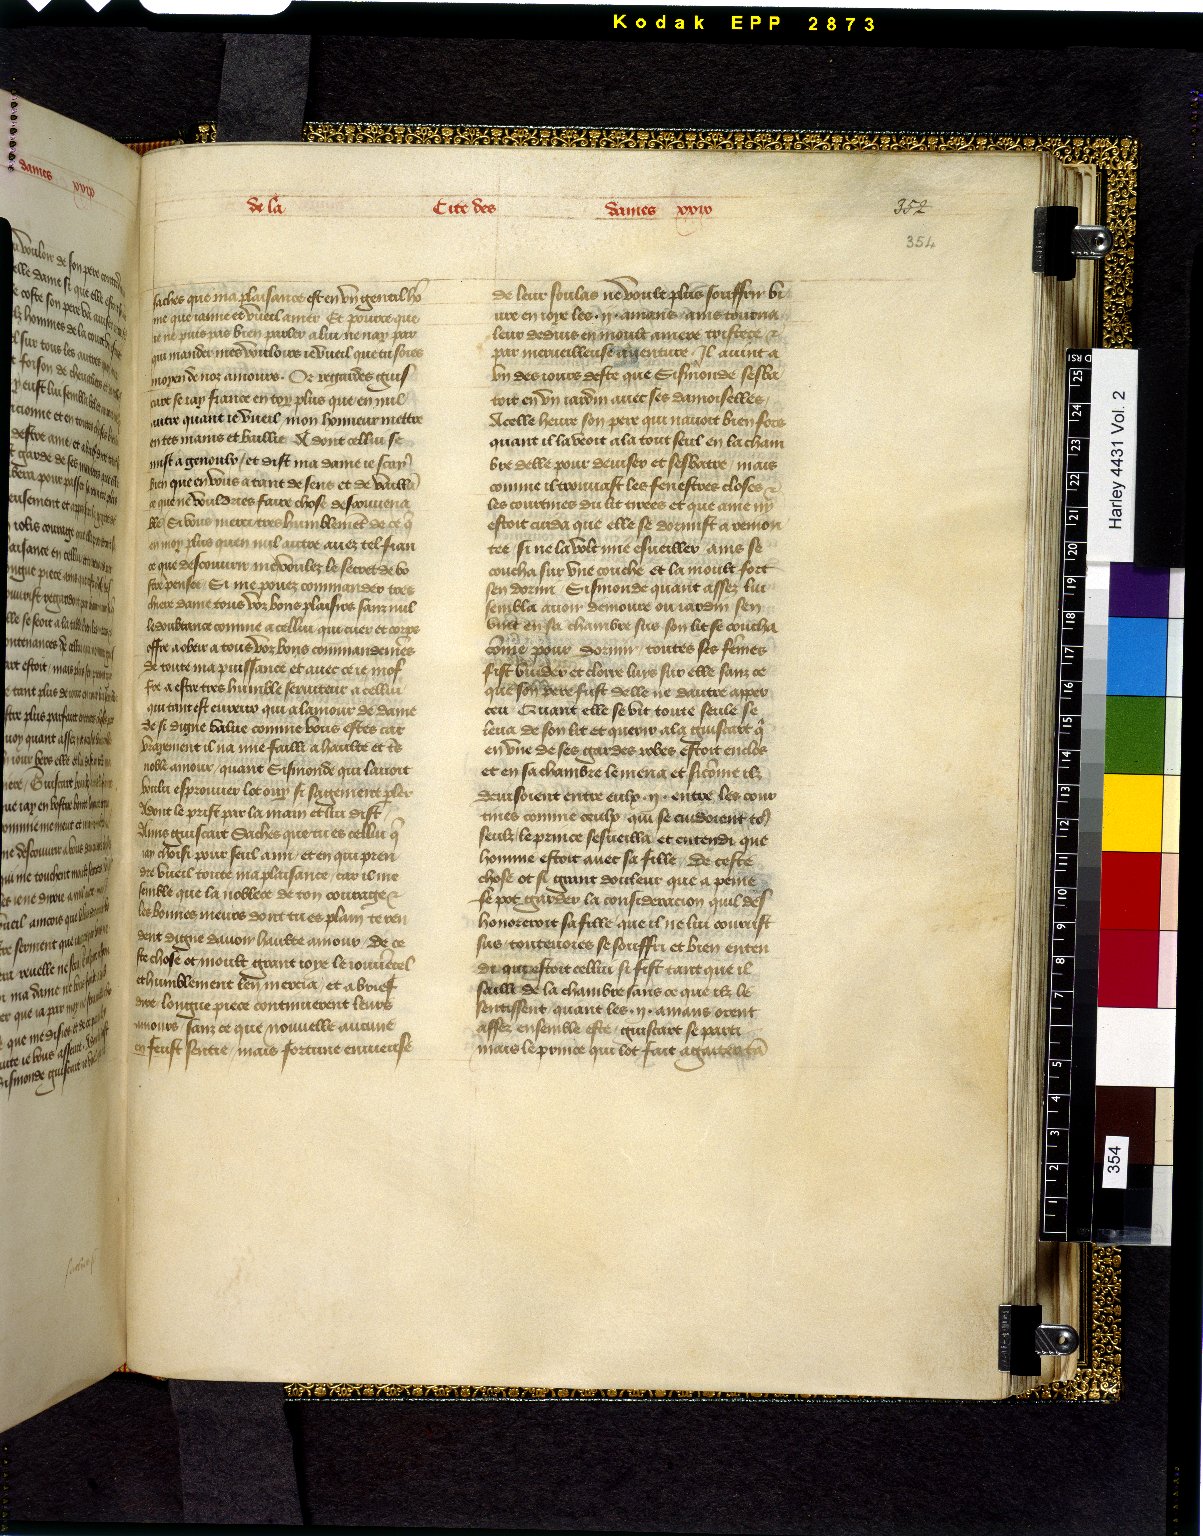 Kodak EPP 2873
de la Cite des dames xxiv
352
354
saches que ma plaisance est en vn gentil hō
me que iaime et vueil amer Et pource que
ie ne puis pas bien parler a lui ne nay par
qui mander mes vouloirs ie vueil que tu soies
moyen de noz amours. Or regardes guis
cart se iay fiance en toy plus que en nul
autre quant ie vueil mon honneur mettre
en tes mains et baillie A dont cellui se
mist a genoulx / et dist ma dame ie scay
bien que en vous a tant de sens et de
ce que ne vouldries faire chose desconuena
ble / Si vous merci tres humblemēt de ce q̄
en moy plus quen nul autre auez tel fian
ce que descouurir me voulez le secret de vo
stre penser / Si me pouez commander tres
chiere dame tous voz bons plaisirs sanz nul
le doubtance comme a cellui qui cuer et corps
offre a obeir a tous voz bons commandemēs
de toute ma puissance et auec ce ie mof
fre a estre tres humble seruiteur a cellui
qui tant est eureux qui a lamour de dame
de si digne value comme vous estes car
vrayement il na mie failli a haulte et
noble amour / quant Sismonde qui lauoit
voulu esprouuer lot ouy si sagement pler
Adont le prist par la main et lui dist
Amis guiscart Saches que tu es cellui q̄
iay choisi pour seul ami / et en qui pren
dre vueil toute ma plaisance / car il me
semble que la noblece de ton courage &
les bonnes meurs dont tu es plain te ren
dent digne dauoir haulte amour / de ce
ste chose ot moult grant ioye le iouuencel
et humblement len mercia / et a brief
dire / longue piece continuerent leurs
amours / sanz ce que nouuelle aucune
en feust sentie / mais fortune enuieuse
de leur soulas ne voult plus souffrir vi
ure en ioye les .ij. amans / ains tourna
leur deduis en moult amere tristece &
par merueilleuse auenture. Il auint a
vn des iours deste que Sismonde sesba
toit en vn iardin auec ses damoiselles /
Acelle heure son pere qui nauoit bien fors
quant il la veoit ala tout seul en la cham
bre delle pour deuiser et sesbatre / mais
comme il trouuast les fenestres closes &
les courtines du lit tirees et que ame ny
estoit cuida que elle se dormist a remon
tee / si ne la volt mie esueiller / ains se
coucha sur vne couche et la moult fort
sen dormi Sismonde quant assez lui
sembla auoir demoure ou iardin sen
vint en sa chambre sus son lit se coucha
cōme pour dormir / toutes ses fēmes
fist vuider et clorre luys sur elle sanz ce
que son pere fust delle ne dautre apper
ceu Quant elle se vit toute seule se
leua de son lit et querir ala guiscart q̄
en vne de ses gardes robes estoit enclos
et en sa chambre le mena et si cōme ilz
deuisoient entre eulx .ij. entre les cour
tines comme ceulx qui se cuidoient
seulz le prince sesueilla et entendi que
homme estoit auec sa fille / de ceste
chose ot si grant douleur que a peine
se pot garder la consideracion quil des
honoreroit sa fille que il ne lui courust
sus / toutenoies se souffri et bien enten
di qui estoit cellui si fist tant que il
sailli de la chambre sans ce que ilz le
sentissent quant les .ij. amans orent
assez ensemble este / guiscart se parti
mais le prince qui lot fait agaitier
Harley 4431 Vol. 2
354